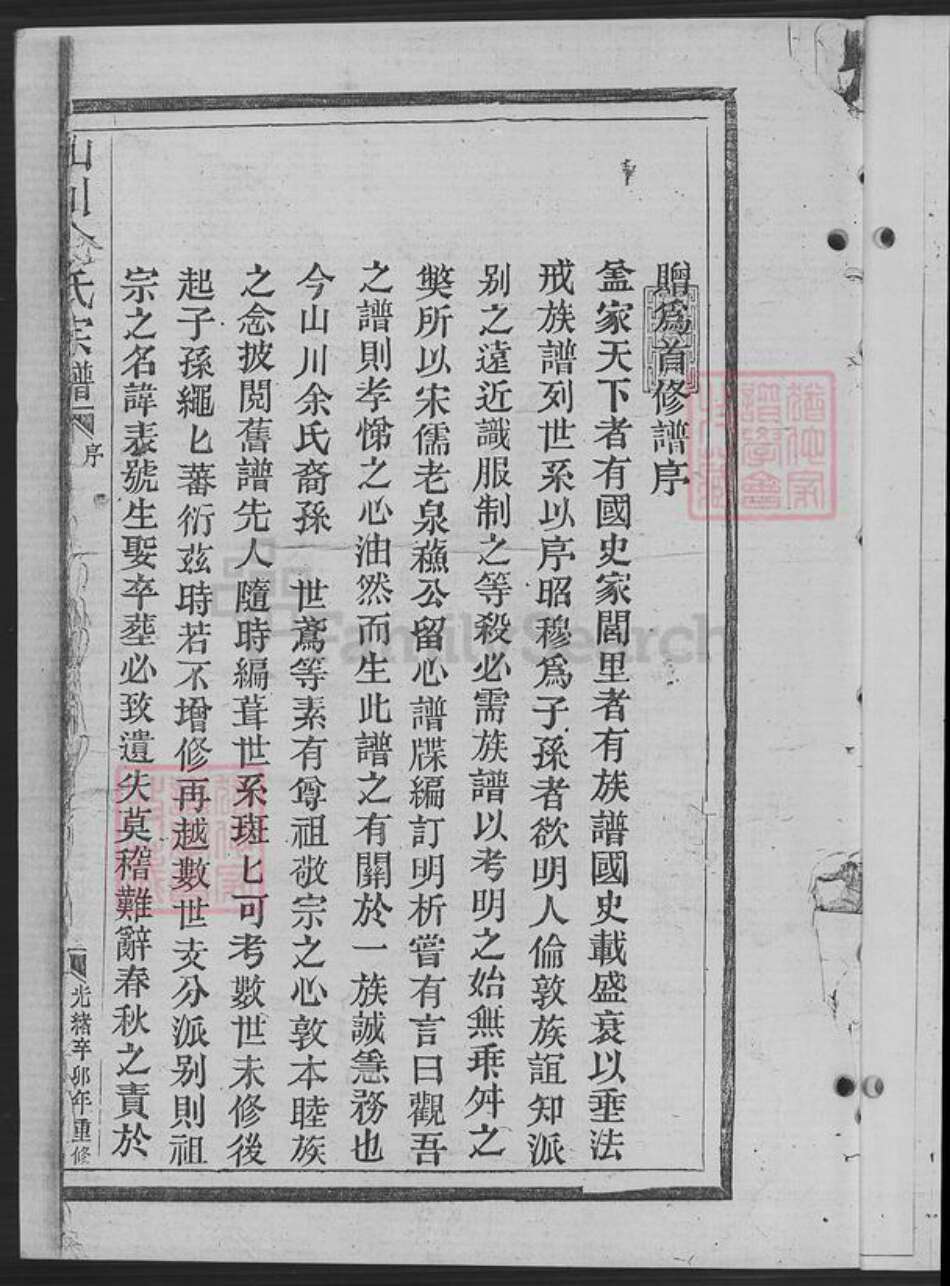 贈爲首修譜序
葢家天下者有國史家閭里者有族譜國史載盛衰以垂法
戒族譜列世系以序昭穆爲子孫者欲明人倫敦族誼知派
别之遠近識服制之等殺必需族譜以考明之始無乖舛之
獘所以宋儒老泉蘓公留心譜牒編訂明析嘗有言曰觀吾
之譜則孝悌之心油然而生此譜之有關於一族誠急務也
今山川余氏裔孫 世鳶等素有尊祖敬宗之心敦本睦族
之念披閱舊譜先人隨時編葺世系斑匕可考數世未修後
起子孫繩匕蕃衍茲時若不增修再越數世支分派别則祖
宗之名諱表號生娶卒塟必致遺失莫稽難辭春秋之責於
山川余氏宗譜
序
光緒辛卯年重修
FamilySearch